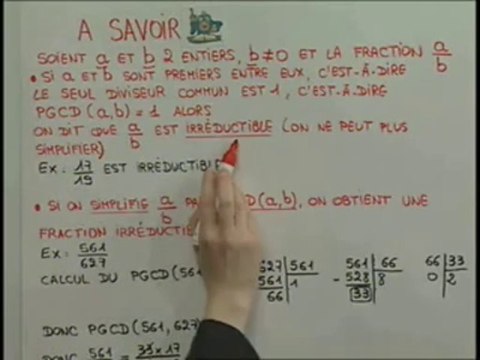 A SAVOIR
SOIENT a ET b 2 ENTIERS, b≠0 ET LA FRACTION a/b
• SI a ET b SONT PREMIERS ENTRE EUX, C'EST-À-DIRE
LE SEUL DIVISEUR COMMUN EST 1, C'EST-À-DIRE
PGCD (a,b) = 1 ALORS
ON DIT QUE a/b EST IRRÉDUCTIBLE (ON NE PEUT PLUS
SIMPLIFIER)
EX: 17/19 EST IRRÉDUCTIBLE
• SI ON SIMPLIFIE a/b PA D(a,b), ON OBTIENT UNE
FRACTION IRRÉDUCTI
EX: 561/627
CALCUL DU PGCD(561
627 | 561
561 | 1
66
- 561 | 66
528 | 8
33
66 | 33
0 | 2
DONC PGCD(561, 627)
DONC 561 = 33×17